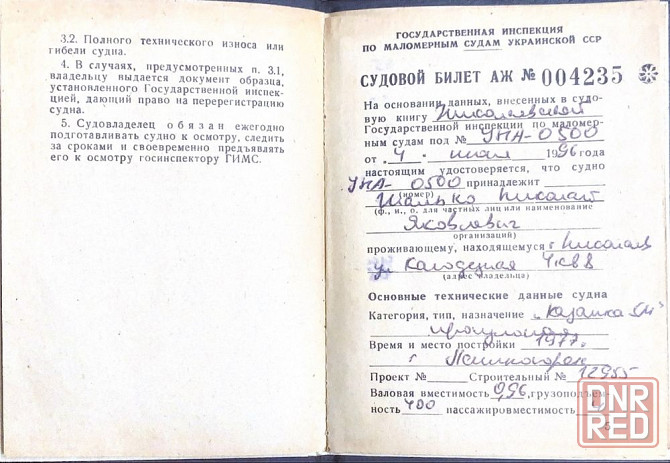 3.2. Полного технического износа или
гибели судна.
4. В случаях, предусмотренных п. 3.1,
владельцу выдается документ образца,
установленного Государственной инспек-
цией, дающий право на перерегистрацию
судна.
5. Судовладелец обязан ежегодно
подготавливать судно к осмотру, следить
за сроками и своевременно предъявлять
его к осмотру госинспектору ГИМС.
ГОСУДАРСТВЕННАЯ ИНСПЕКЦИЯ
ПО МАЛОМЕРНЫМ СУДАМ УКРАИНСКОЙ ССР
СУДОВОЙ БИЛЕТ АЖ № 004235
На основании данных, внесенных в судо-
вую книгу Николаевской
Государственной инспекции по маломер-
ным судам под № УНА-0500
от 4 1996 года
настоящим удостоверяется, что судно
УНА-0500 принадлежит
(номер)
Николай
(ф., и., о. для частных лиц или наименование
Яковлевич
организаций)
проживающему, находящемуся г. Николаев
ул Колодезная 4 кв 8
(адрес владельца)
Основные технические данные судна
Категория, тип, назначение „Казанка 5М"
прогулочная
Время и место постройки 1977г.
г
Проект № Строительный № 12955
Валовая вместимость 0,96, грузоподъем-
ность 400 пассажировместимость
5
DNR
RED